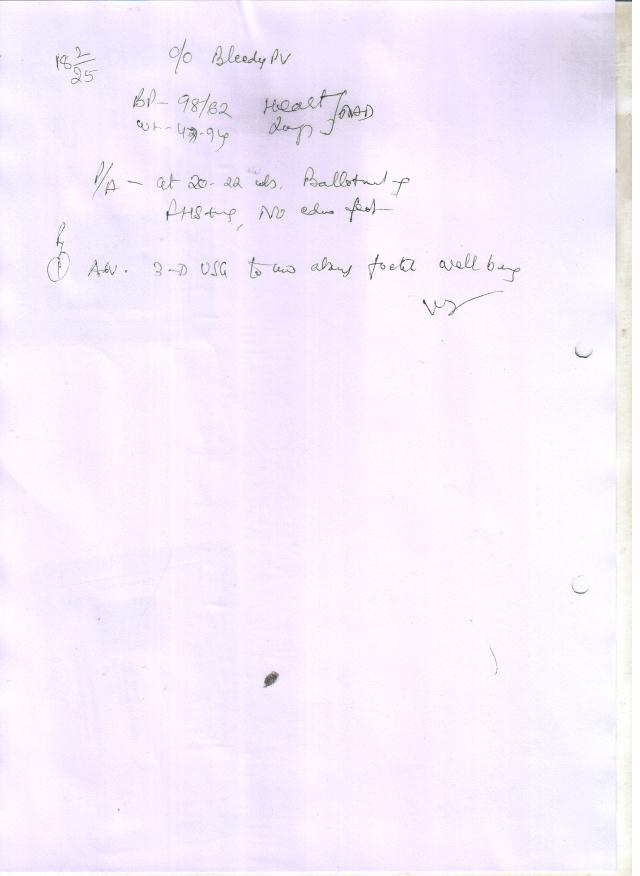 18 2/25 c/o Bleedy PV
BP - 98/62 Heart
wt - 47.94 Lungs } NAD
P/A - at 20-22 wks. Ballotment +
FHS +ng, No edma feet
Rx
① Adv. 3-D USG to foetal well being